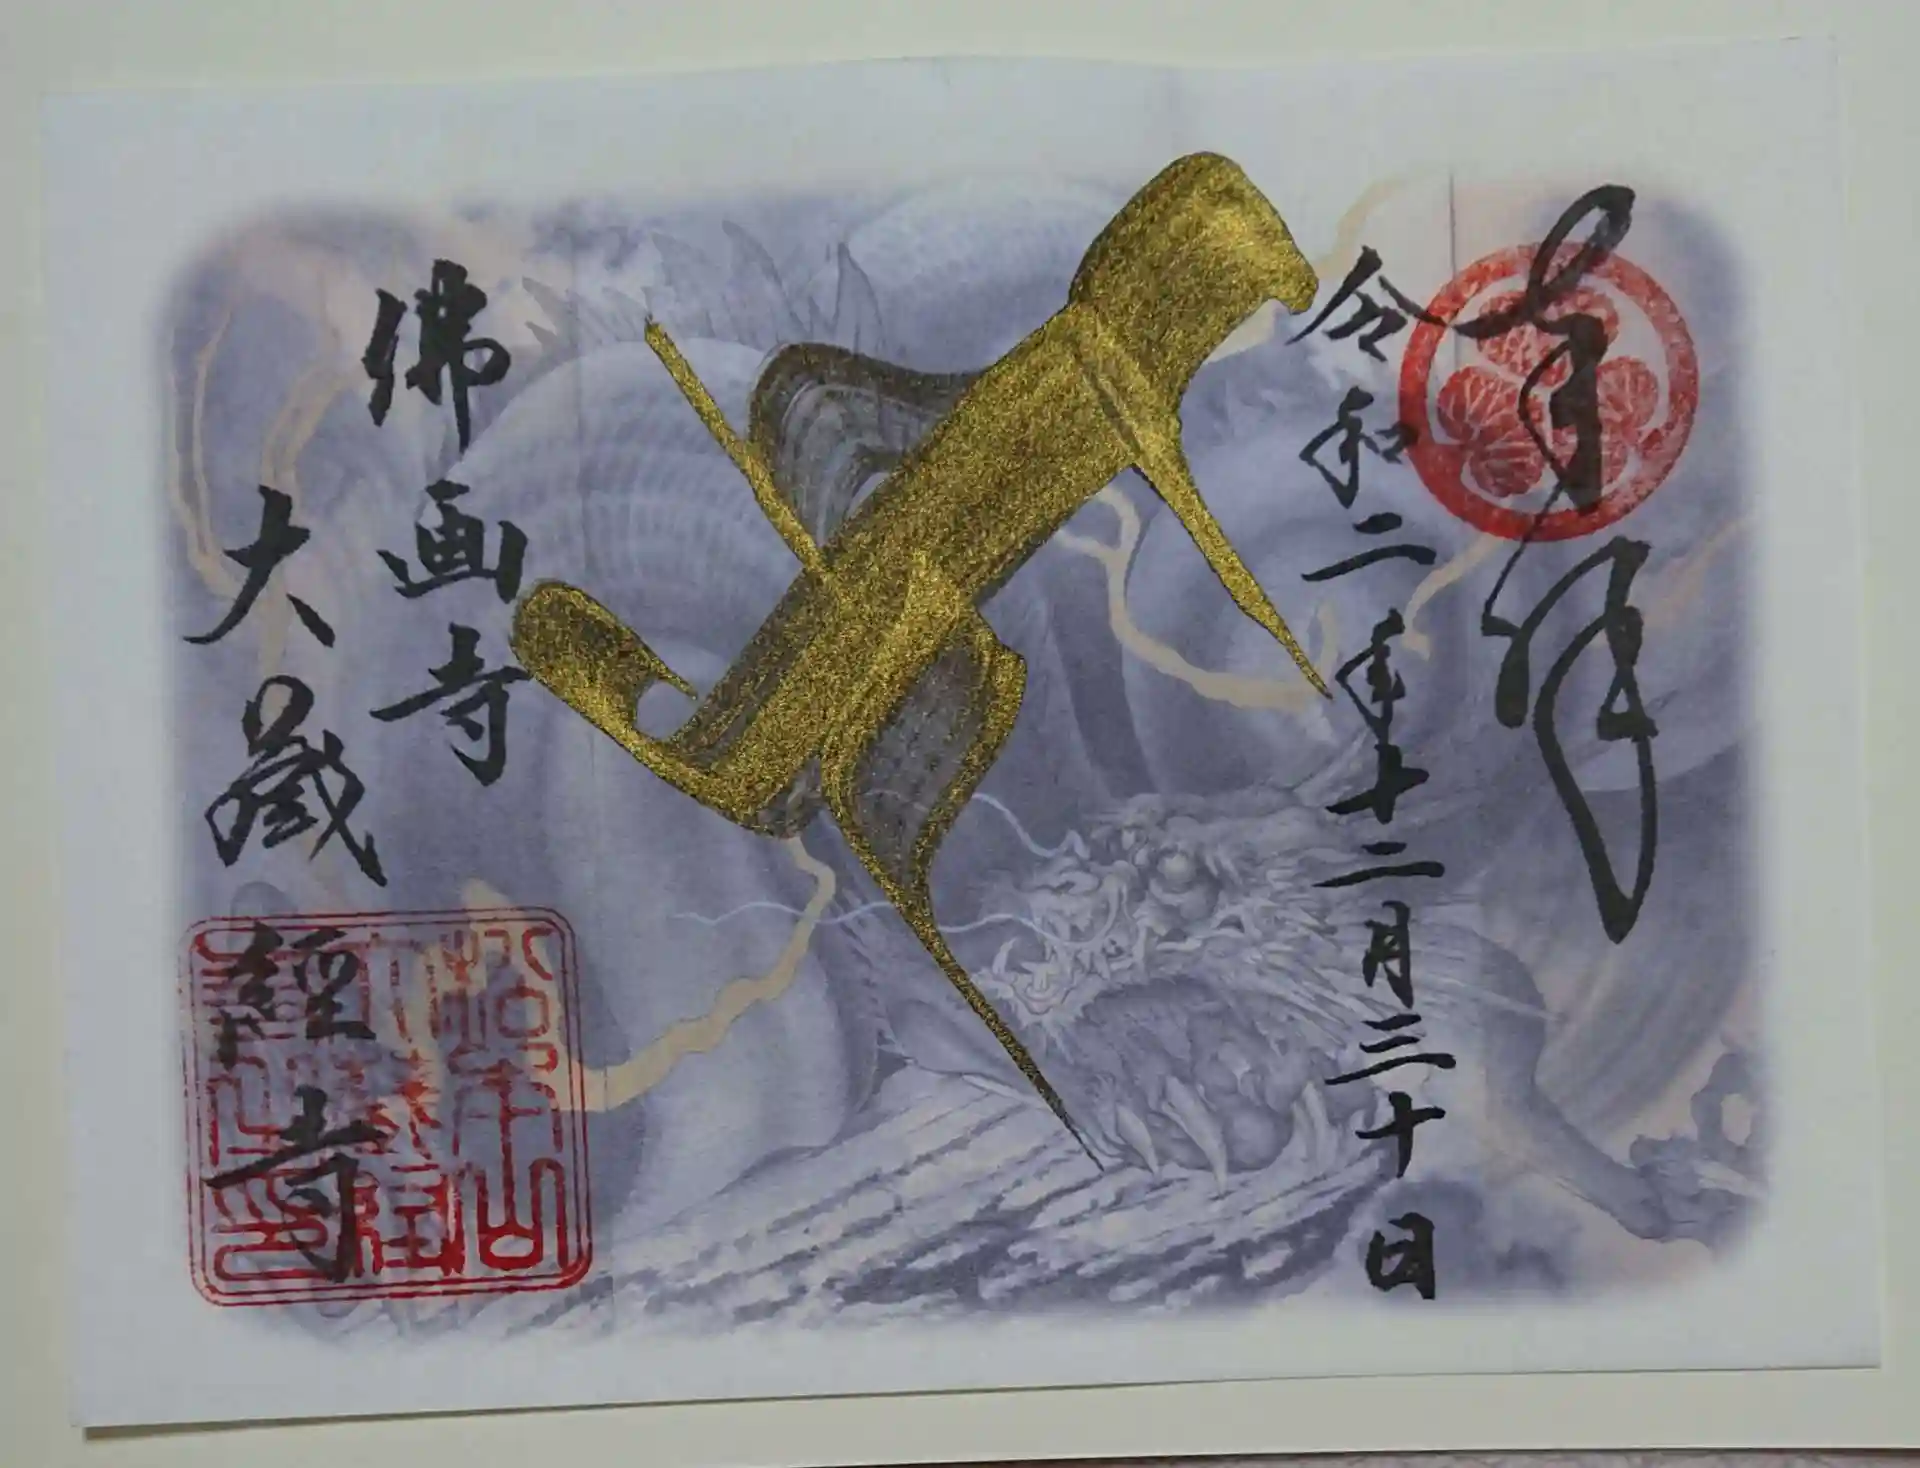 奉拝
令和二年十二月三十日
佛画寺
大蔵経寺
松本山